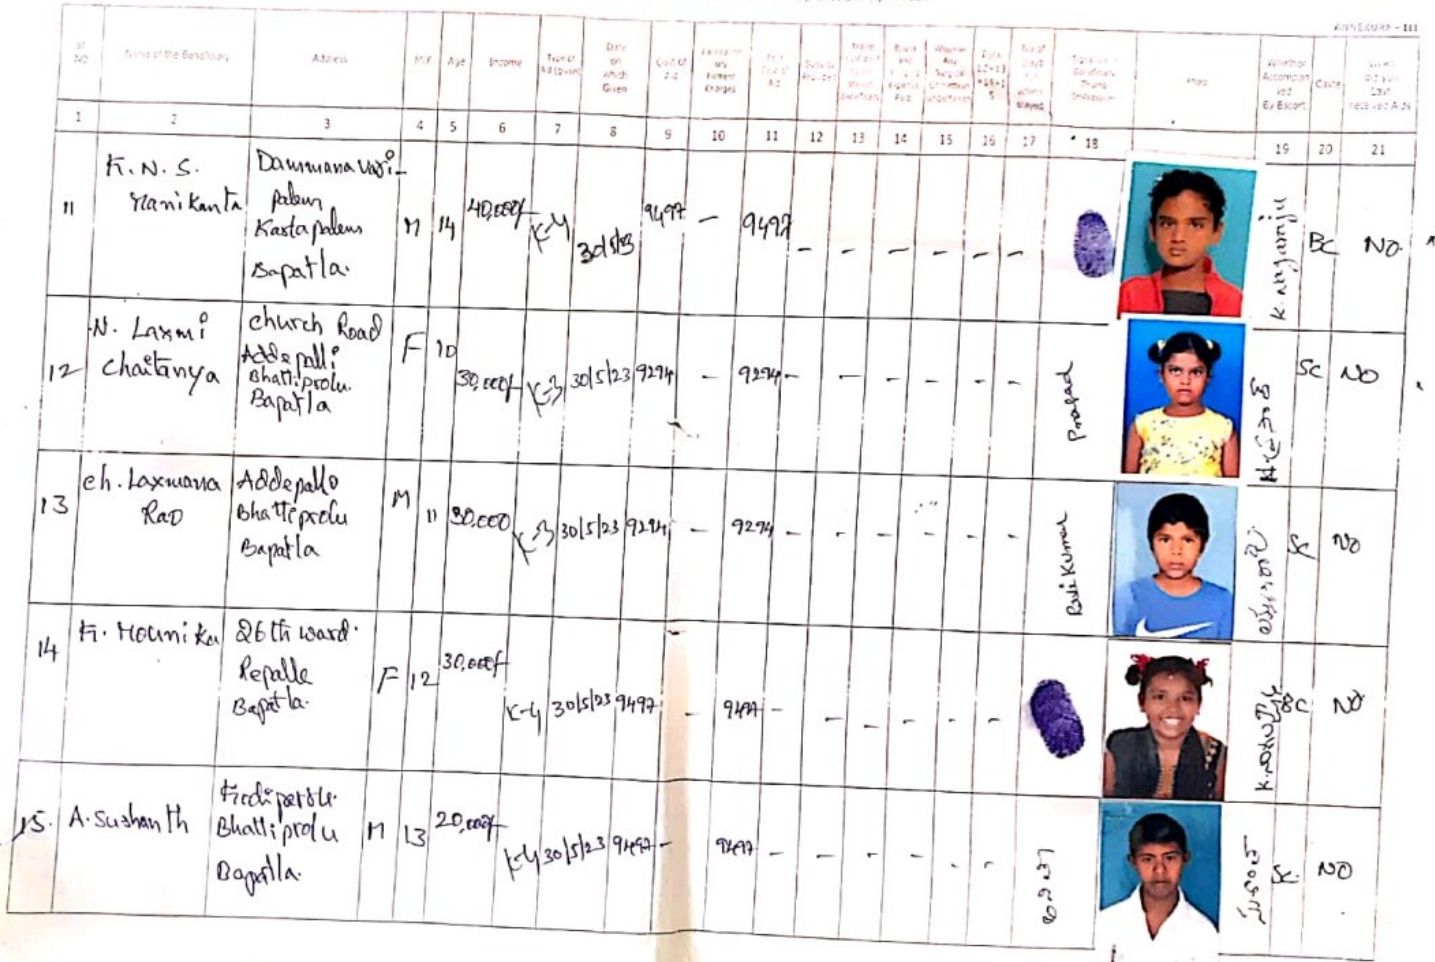 ANNEXURE - III
Sl NO Name of the Beneficiary Address M/F Age Income Type of Aid (given) Date on which Given Cost of Aid Total Cost of Aid Whether Accompanied By Escort Caste
1 2 3 4 5 6 7 8 9 10 11 12 13 14 15 16 17 18 19 20 21
11 K. N. S. Manikanta
Dammanavari
palem
Kastapalem
Bapatla.
M 14 40,000/- K-4 30/5/23 9497 - 9497 - - - - - - K. Nagaraju BC NO
12 N. Laxmi
Chaitanya
church Road
Addepalli
Bhattiprolu.
Bapatla
F 10 30,000/- K-3 30/5/23 9294 - 9294 - - - - - - Prasad SC NO
13 ch. Laxmana
Rao
Addepallo
Bhattiprolu
Bapatla
M 11 30,000 K-3 30/5/23 9294 - 9294 - - - - - - SC NO
14 K. Mounika
26th ward.
Repalle
Bapatla.
F 12 30,000/- K-4 30/5/23 9497 - 9497 - - - - - BC NO
15. A. Sushanth
Bhattiprolu
Bapatla.
M 13 20,000/- K-4 30/5/23 9497 - 9497 - - - - - SC. NO